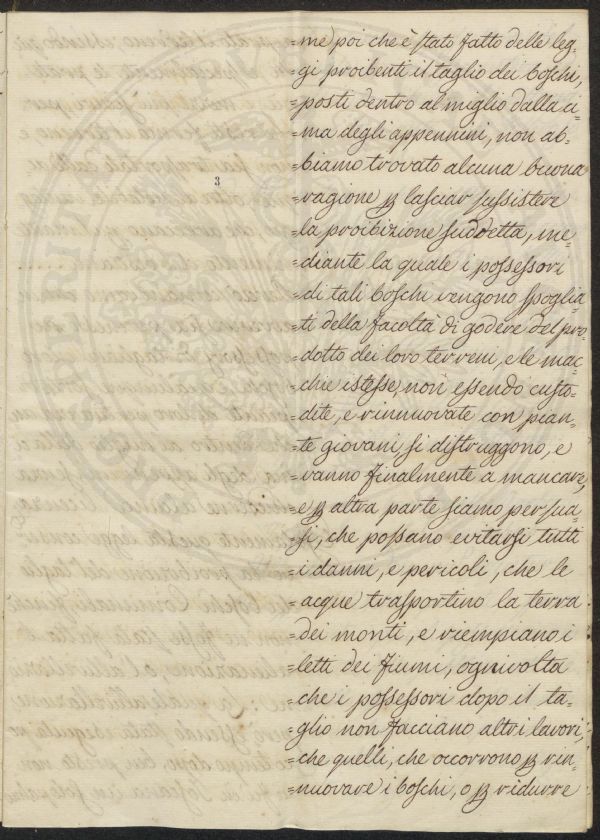 =me) poi che è stato fatto delle leg=
=gi proibenti il taglio dei boschi,
=posti dentro al miglio dalla ci=
=ma degli appennini, non ab=
=biamo trovato alcuna buona
3
=ragione ꝑ lasciar sussistere
=la proibizione suddetta, me=
=diante la quale i possessori
=di tali boschi vengono spoglia=
=ti della facoltà di godere del pro=
=dotto dei loro terreni, e le mac=
=chie istesse, non essendo custo=
=dite, e rinnuovate con pian=
=te giovani, si distruggono, e
=vanno finalmente a mancare,
=e ꝑ altra parte siamo persua=
=si, che possano evitarsi tutti
=i danni, e pericoli, che le
=acque trasportino la terra
=dei monti, e riempiano i
=letti dei fiumi, ogni volta
=che i possessori dopo il ta=
=glio non facciano altri lavori,
=che quelli, che occorrono ꝑ rin=
=nuovare i boschi, o ꝑ ridurre